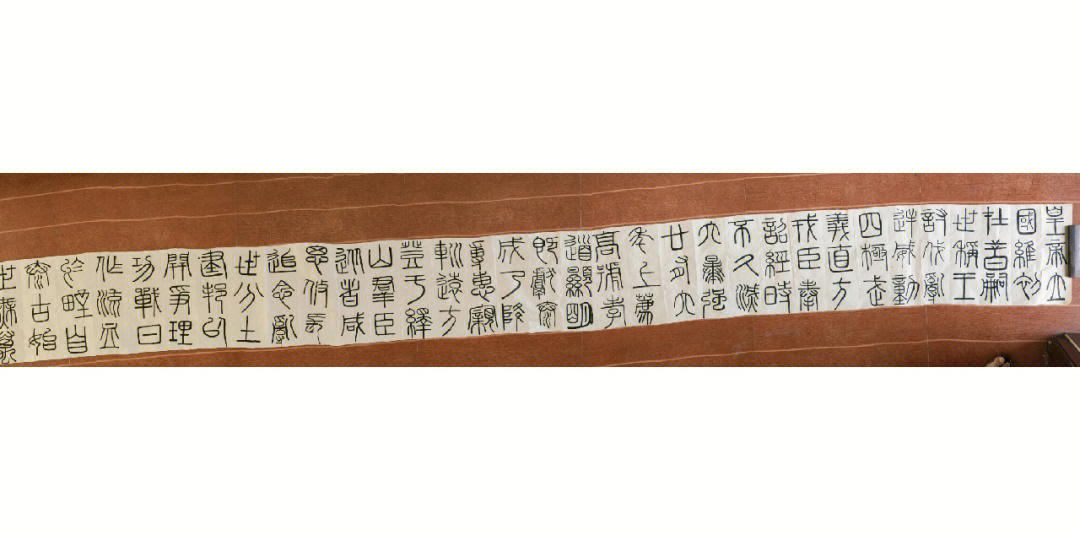 皇帝立
國維初
在昔嗣
世稱王
討伐亂
逆威動
四極武
義直方
戎臣奉
詔經時
不久滅
六暴強
廿有六
年上薦
高號孝
道顯明
既獻泰
成乃降
專惠寴
巡遠方
登于繹
山羣臣
從者咸
思攸長
追念亂
世分土
建邦以
開爭理
功戰日
作流血
於野自
泰古始
世無萬